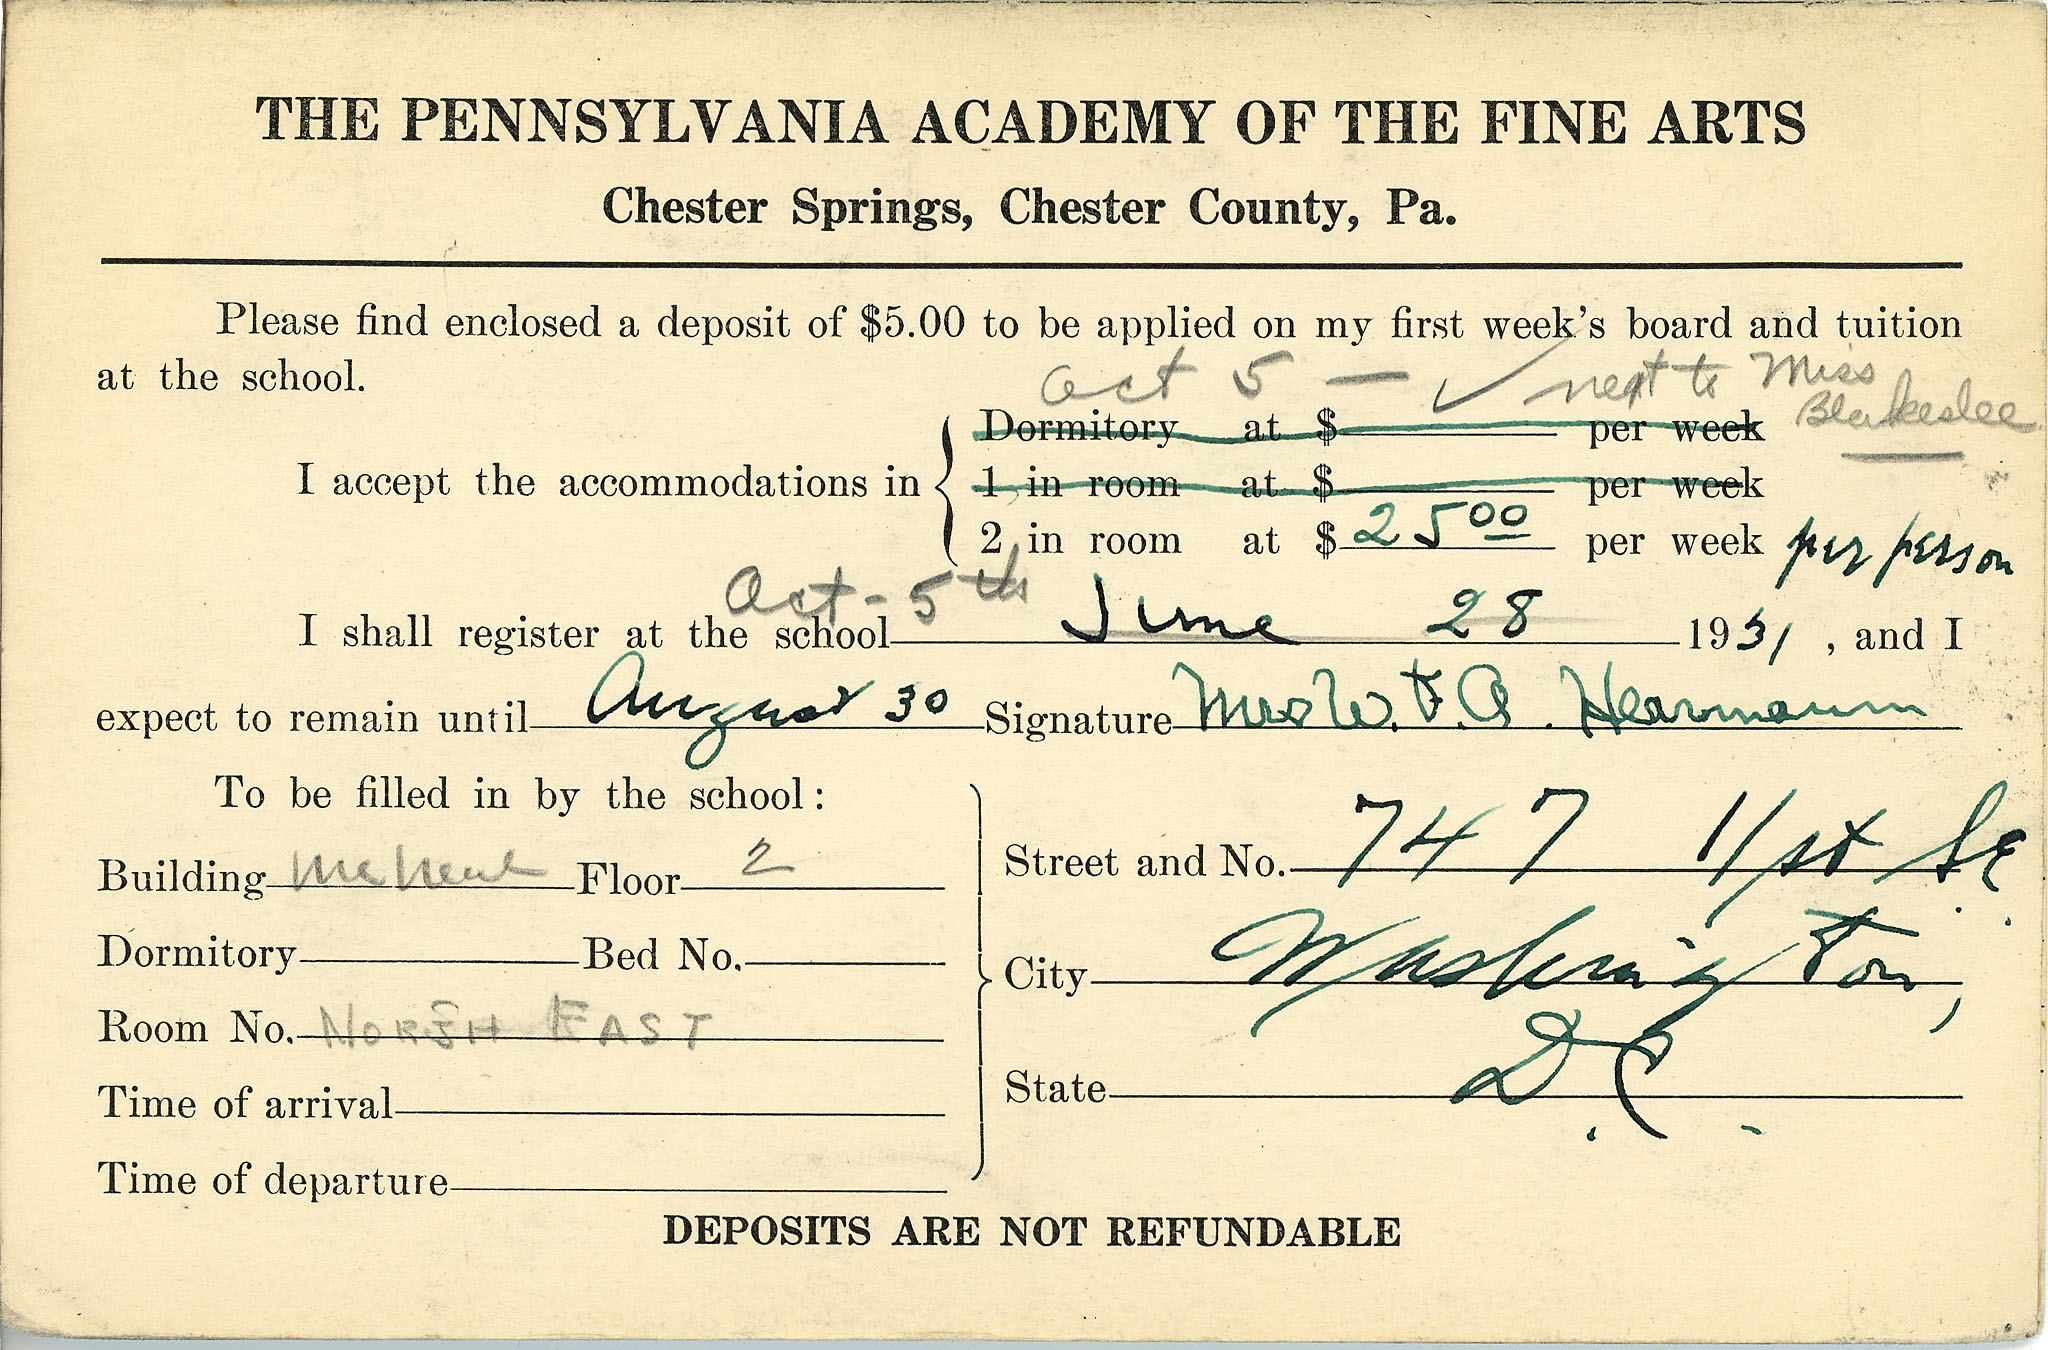 THE PENNSYLVANIA ACADEMY OF THE FINE ARTS
Chester Springs, Chester County, Pa.
Please find enclosed a deposit of $5.00 to be applied on my first week's board and tuition
at the school.
Oct 5 — ✓ next to Miss
Blakeslee
Dormitory at $ per week
I accept the accommodations in
1 in room at $ per week
2 in room at $ 25 00 per week per person
Oct - 5th
I shall register at the school June 28 1931 , and I
expect to remain until August 30 Signature Mrs W. F. A. Hearmaum
To be filled in by the school:
Street and No. 747 11 st Se.
Building Floor 2
City Washington,
Dormitory Bed No.
Room No. NORTH EAST
State D.C.
Time of arrival
Time of departure
DEPOSITS ARE NOT REFUNDABLE